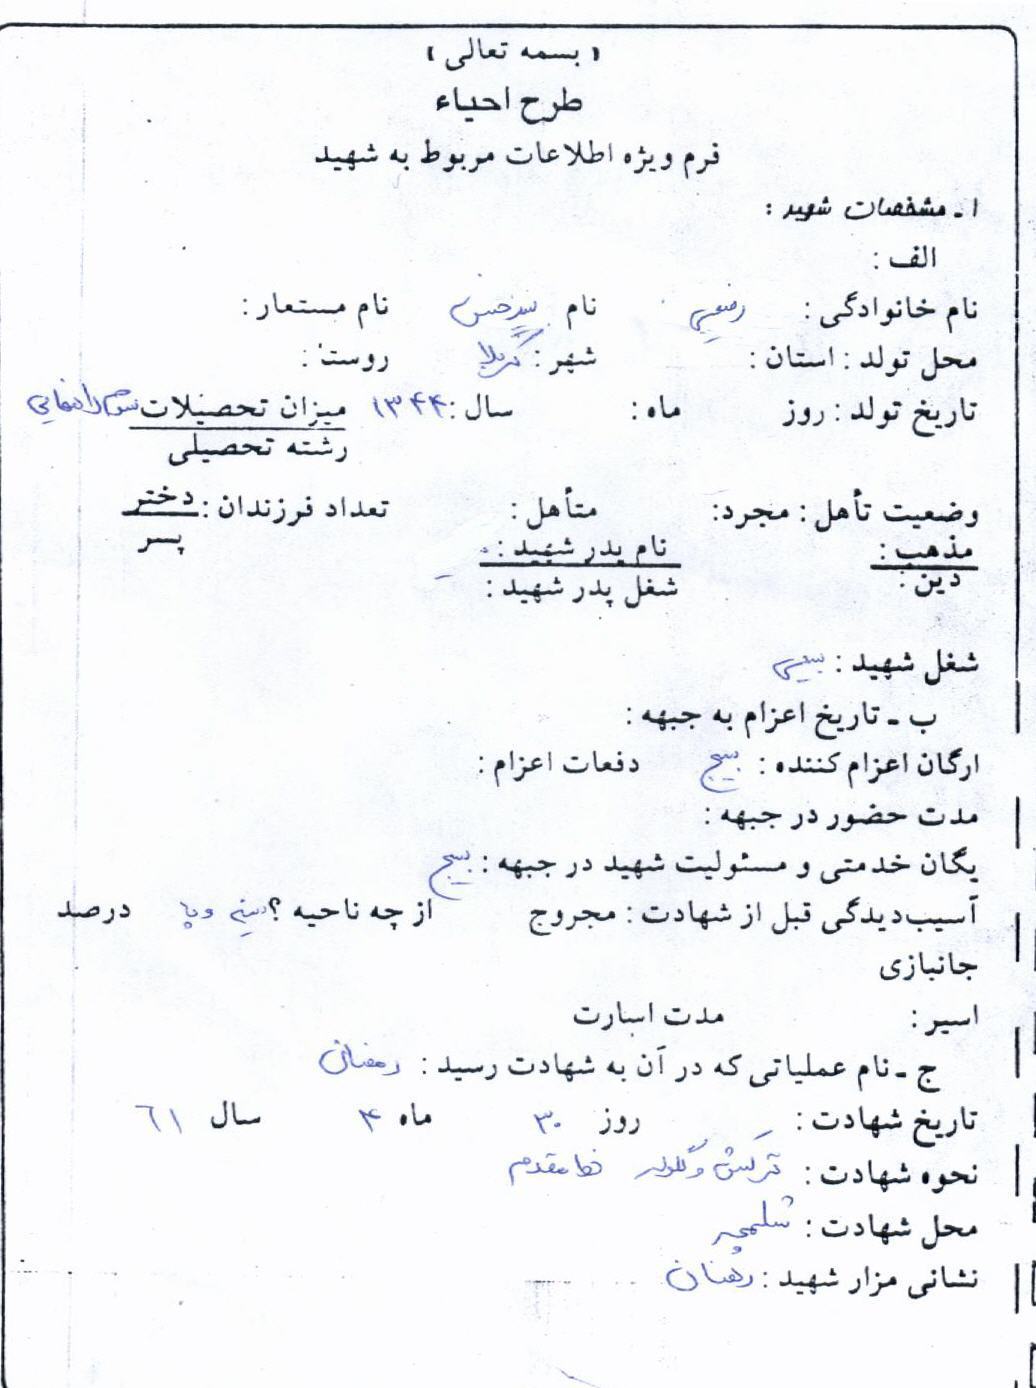 ( بسمه تعالی )
طرح احیاء
فرم ویژه اطلاعات مربوط به شهید
۱ ـ مشخصات شهید :
الف :
نام خانوادگی : نام سیدحسن نام مستعار :
محل تولد : استان : شهر : کربلا روستا :
تاریخ تولد : روز ماه : سال : ۱۳۴۴ میزان تحصیلات سوم راهنمایی
رشته تحصیلی
وضعیت تأهل : مجرد: متأهل : تعداد فرزندان : دختر
پسر
مذهب : نام پدر شهید :
دین : شغل پدر شهید :
شغل شهید :
ب ـ تاریخ اعزام به جبهه :
ارگان اعزام کننده : بسیج دفعات اعزام :
مدت حضور در جبهه :
یگان خدمتی و مسئولیت شهید در جبهه : بسیج
آسیب‌دیدگی قبل از شهادت : مجروح از چه ناحیه ؟ سینه و پا درصد
جانبازی
اسیر : مدت اسارت
ج ـ نام عملیاتی که در آن به شهادت رسید : رمضان
تاریخ شهادت : روز ۳۰ ماه ۴ سال ٦١
نحوه شهادت : ترکش و گلوله خط مقدم
محل شهادت : شلمچه
نشانی مزار شهید : رهنان